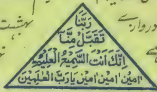 ربنا
تقبل منا
انك انت السميع العليم
امين امين امين يارب العلمين